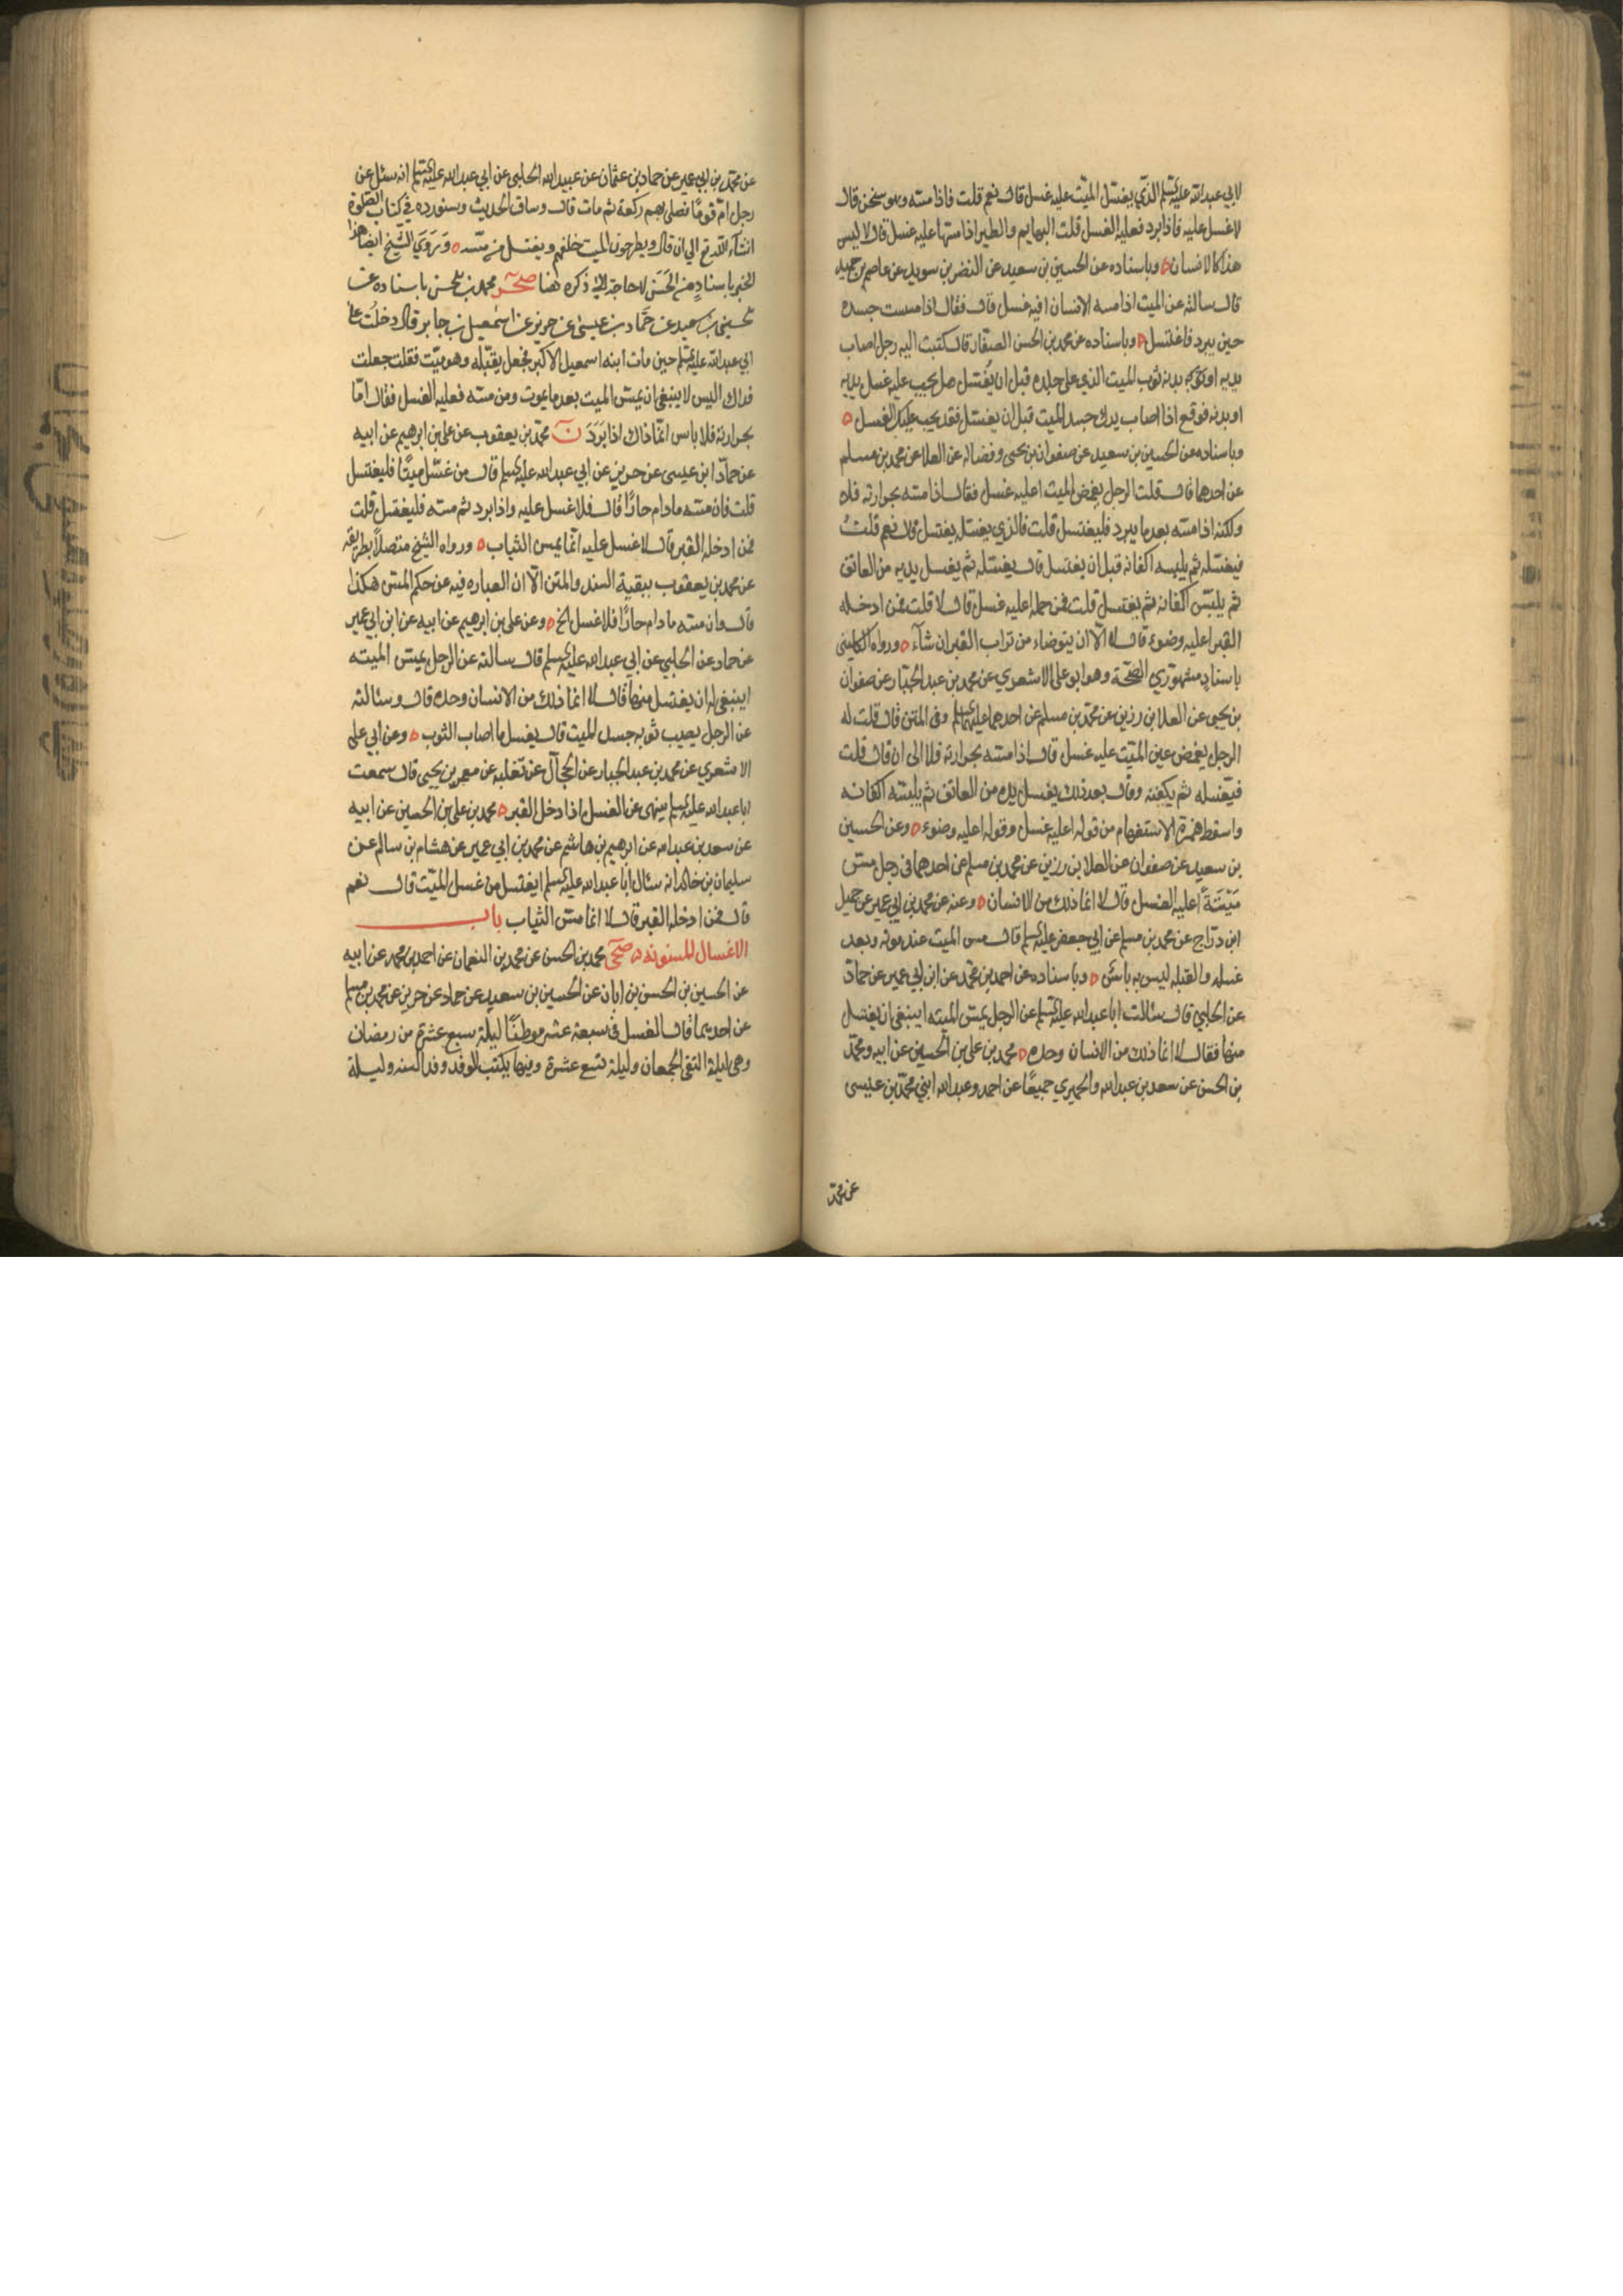 لابي عبدالله عليه السلم الذي يغسّل الميّت عليه غسل قال نعم قلت فاذا مسّه وهو سخن قال
لا غسل عليه فاذا برد فعليه الغسل قلت البهايم والطير اذا مسّها عليه غسل قال لا ليس
هذا كالانسان ه وباسناده عن الحسين بن سعيد عن النضر بن سويد عن عاصم بن حميد
قال سالته عن الميت اذا مسه الانسان افيه غسل قال فقال اذا مسست جسده
حين يبرد فاغتسل ه وباسناده عن محمد بن الحسن الصفّار قال كتبت اليه رجل اصاب
يديه او بدنه ثوب الميت الذي على جلده قبل ان يغسّل هل يجب عليه غسل يديه
او بدنه فوقع اذا اصاب يدك جسد الميت قبل ان يغسّل فقد يجب عليك الغسل ه
وباسناده عن الحسين بن سعيد عن صفوان بن يحيى وفضاله عن العلا عن محمد بن مسلم
عن احدهما قال قلت الرجل يغمض الميت اعليه غسل فقال اذا مسّه بحرارته فلا
ولكنه اذا مسّه بعد ما يبرد فليغتسل قلت فالذي يغسّله يغتسل قال نعم قلتُ
فيغسّله ثم يلبسه اكفانه قبل ان يغتسل قال يغسّله ثم يغسل يديه من العاتق
ثم يلبسّ اكفانه ثم يغتسل قلت فمن حمله اعليه غسل قال لا قلت فمن ادخله
القبر اعليه وضوء قال لا الّا ان يتوضاء من تراب القبر ان شآء ه ورواه الكليني
باسناد مشهوري الصّحة وهو ابو علي الاشعري عن محمد بن عبد الجبّار عن صفوان
بن يحيى عن العلا بن رزين عن محمّد بن مسلم عن احدهما عليهما السلم وفي المتن قال قلت له
الرجل يغمض عين الميّت عليه غسل قال اذا مسّه بحرارته فلا الى ان قال قلت
فيغسله ثم يكفنه وقال بعد ذلك يغسل يده من العاتق ثم يلبسّه اكفانه
واسقط همزة الاستفهام من قوله اعليه غسل وقوله اعليه وضوء ه وعن الحسين
بن سعيد عن صفوان عن العلا بن رزين عن محمد بن مسلم عن احدهما في رجل مسّ
مَيْتَةً اعليه الغسل قال لا انما ذلك من الانسان ه وعنه عن محمد بن ابي عمير عن جميل
ابن درّاج عن محمد بن مسلم عن ابي جعفر عليه السلم قال مس الميت عند موته وبعد
غسله والقبله ليس به باس ه وباسناده عن احمد بن محمّد عن ابن ابي عمير عن حمّاد
عن الحلبي قال سئالت ابا عبدالله عليه السلم عن الرجل يمسّ الميته اينبغي ان يغتسل
منها فقال لا انما ذلك من الانسان وحده ه محمد بن علي بن الحسين عن ابيه ومحمّد
بن الحسن عن سعد بن عبدالله والحميري جميعًا عن احمد وعبدالله ابني محمّد بن عيسى
عن محمّد
عن محمّد بن ابي عمير عن حماد بن عثمان عن عبيدالله الحلبي عن ابي عبدالله عليه السلم انه سئل عن
رجل امّ قومًا فصلى بهم ركعة ثم مات قال وساق الحديث وسنورده في كتاب الصّلوة
انشآء الله تع الى ان قال ويطرحون الميت خلفهم ويغتسل من مسّه ه وَرَوَي الشّيخ ايضا هذا
الخبر باسنادٍ من الحَسَن لا حاجة الى ذكره هنا صحر محمد بن الحسن باسناده عن
الحسين بن سعيد عن حَمّاد بن عيسى عن حريز عن اسمعيل بن جابر قال دخلت على
ابي عبدالله عليه السلم حين مات ابنه اسمعيل الاكبر فجعل يقبّله وهو ميّت فقلت جعلت
فداك اليس لا ينبغي ان يمسّ الميت بعد ما يموت ومن مسّه فعليه الغسل فقال امّا
بحرارته فلا باس انمّا ذاك اذا بَرَدَ ن محمّد بن يعقوب عن علي بن ابرهيم عن ابيه
عن حمّاد ابن عيسى عن حريز عن ابي عبدالله عليه السلم قال من غسّل ميتًا فليغتسل
قلت فان مسّه ما دام حارًا قال فلا غسل عليه واذا برد ثم مسّه فليغتسل قلت
فمن ادخله القبر قال لا غسل عليه انمّا يمس الثياب ه ورواه الشيخ متصلًا بطريقه
عن محمد بن يعقوب ببقية السند والمتن الّا ان العباره فيه عن حكم المسّ هكذا
قال وان مسّه ما دام حارًا فلا غسل الخ ه وعن علي بن ابرهيم عن ابيه عن ابن ابي عمير
عن حماد عن الحلبي عن ابي عبدالله عليه السلم قال سالته عن الرجل يمسّ الميته
اينبغي له ان يغتسل منها قال لا انما ذلك من الانسان وحده قال وسئالته
عن الرجل يصيب ثوبه جسد الميت قال يغسل ما اصاب الثوب ه وعن ابي علي
الاشعري عن محمد بن عبد الجبار عن الحجّال عن ثعلبه عن معمر بن يحيى قال سمعت
ابا عبدالله عليه السلم ينهى عن الغسل اذا دخل القبر ه محمد بن علي بن الحسين عن ابيه
عن سعد بن عبدالله عن ابرهيم بن هاشم عن محمد بن ابي عمير عن هشام بن سالم عن
سليمان بن خالد انه سئال ابا عبدالله عليه السلم ايغتسل من غسل الميّت قال نعم
قال فمن ادخله القبر قال لا انما مسّ الثياب باب
الاغسال المسنونه ه صحى محمد بن الحسن عن محمد بن النعمان عن احمد بن محمد عن ابيه
عن الحسين بن الحسن بن ابان عن الحسين بن سعيد عن حماد عن حريز عن محمد بن مسلم
عن احديهما قال الغسل في سبعة عشر موطنًا ليلة سبع عشرة من رمضان
وهي ليلة التقى الجمعان وليلة تسع عشرة وفيها يكتب الوفد وفد السنه وليلة